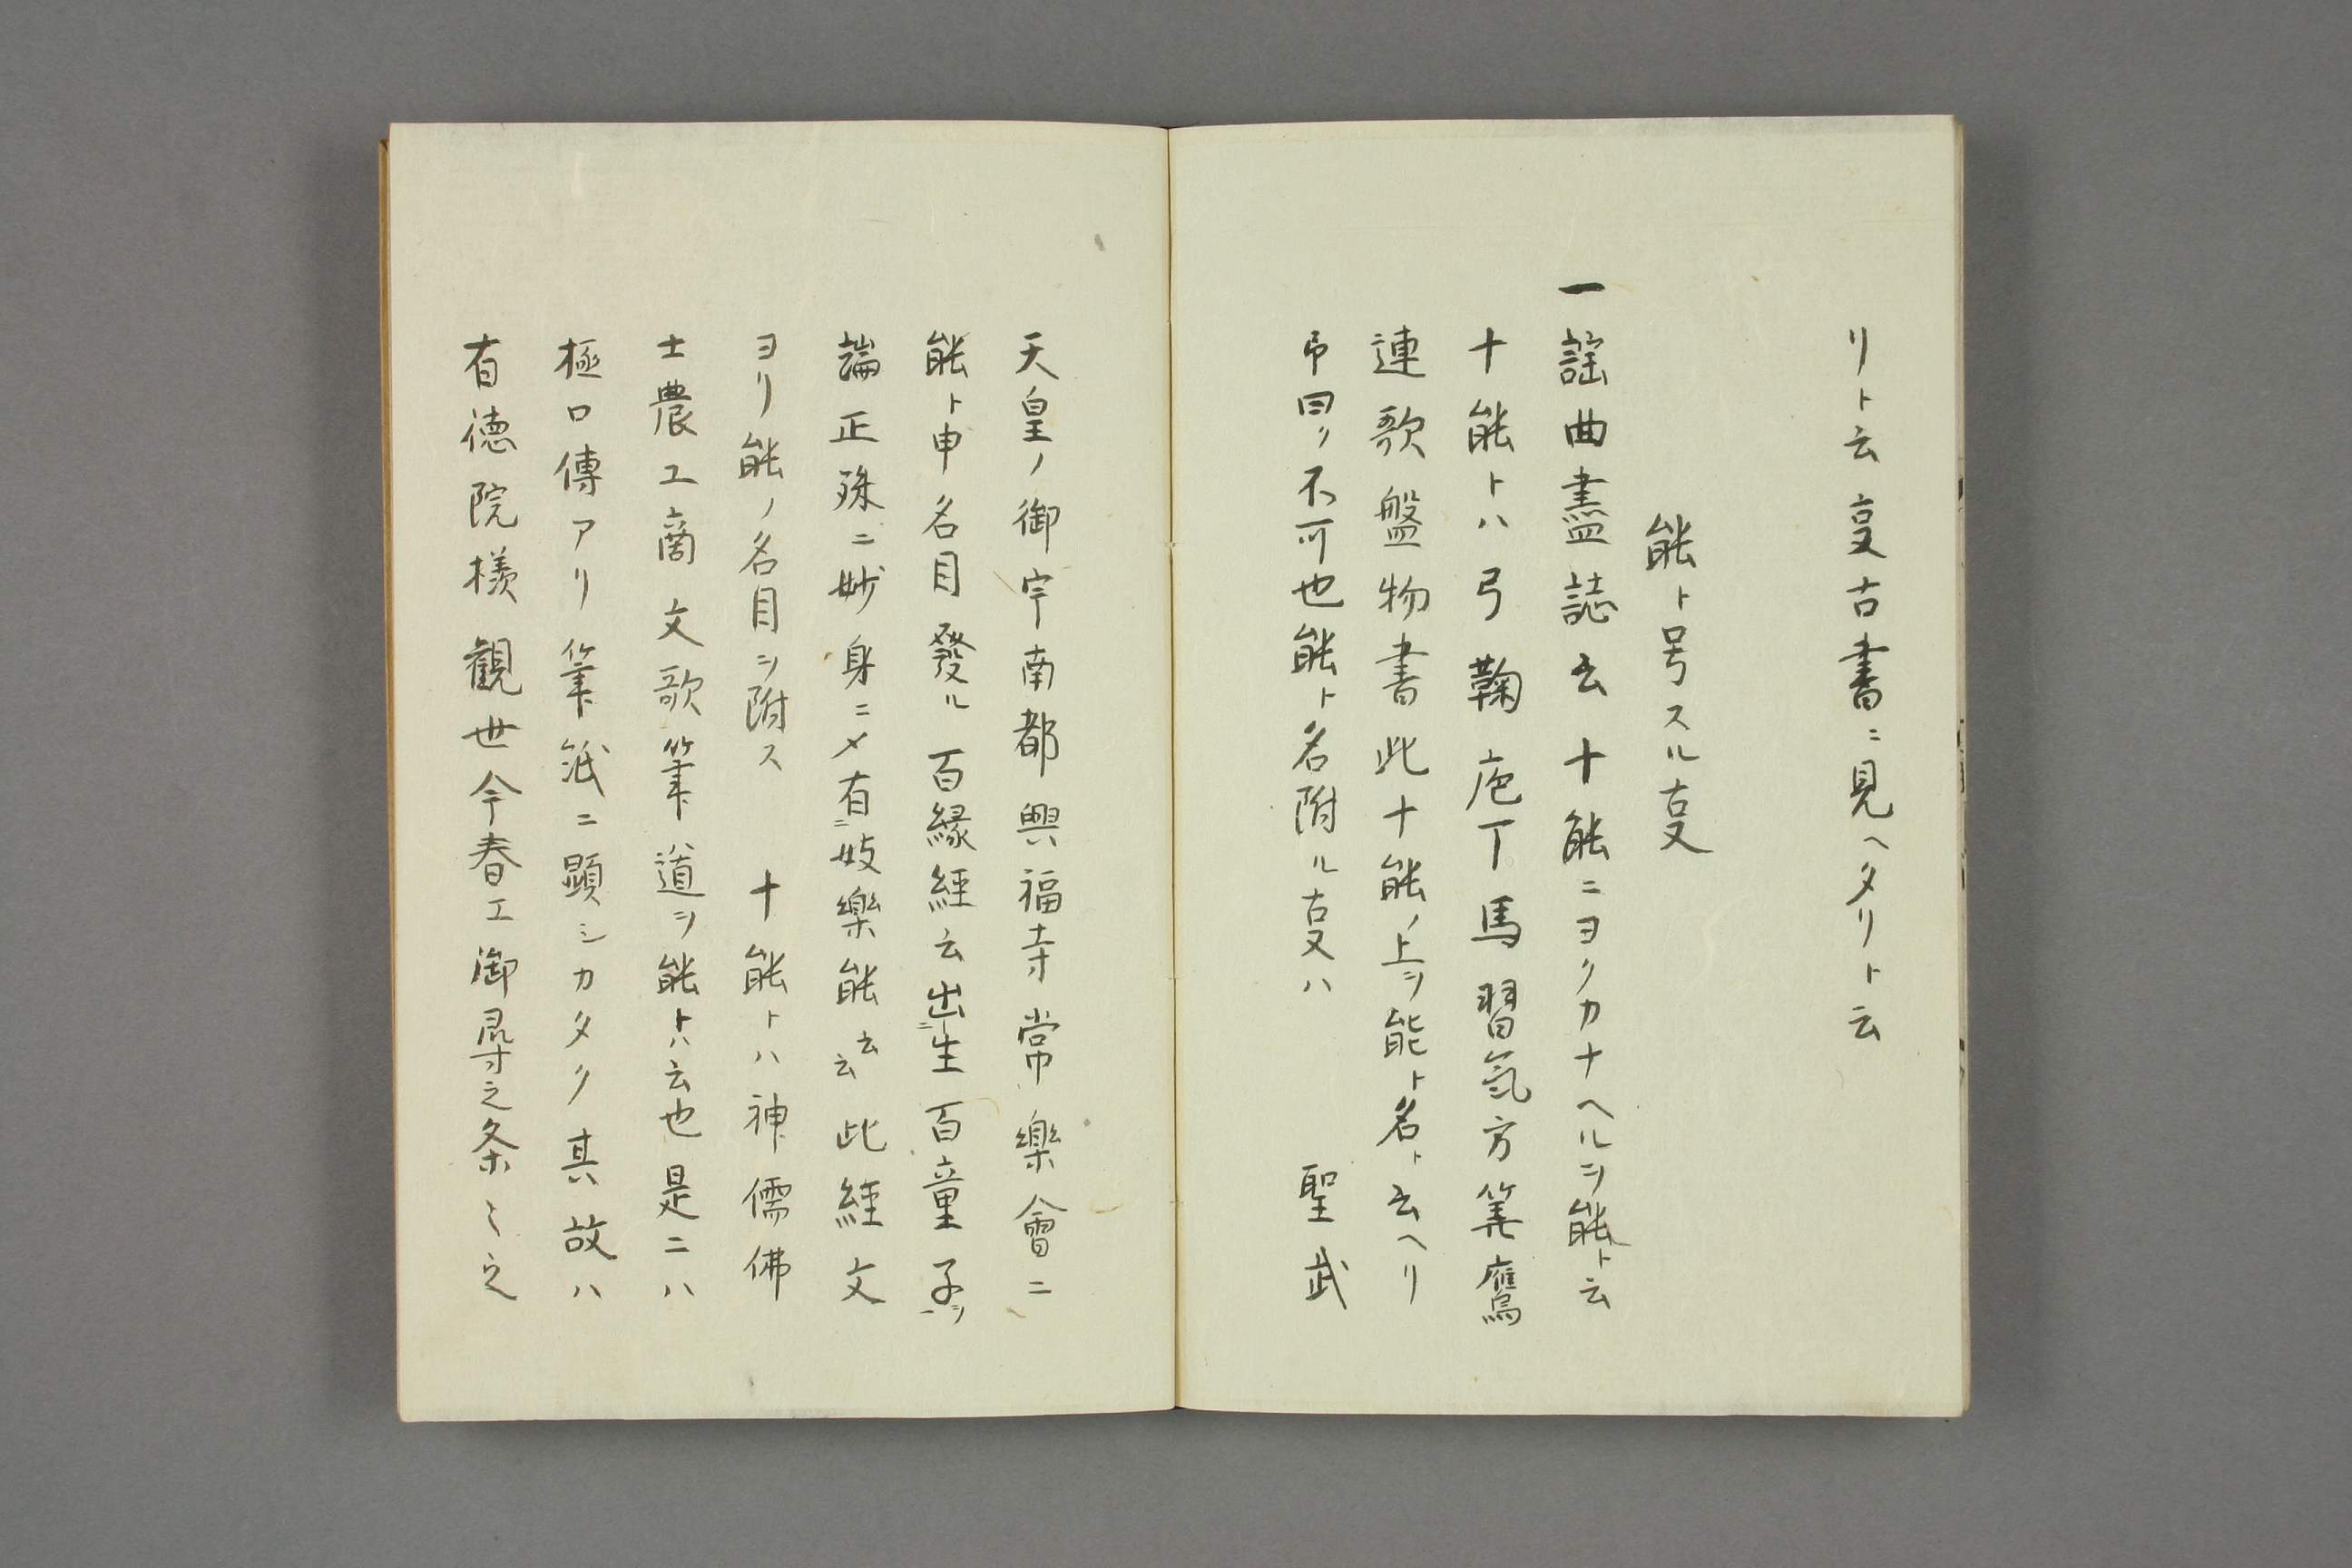 リト云叓古書ニ見ヘタリト云
能ト号スル叓
一謡曲盡誌云十能ニヨクカナヘルヲ能ト云
十能トハ弓鞠庖丁馬習氣方筭鷹
連歌盤物書此十能ノ上ヲ能ト名ト云ヘリ
帝曰ク不可也能ト名附ル叓ハ　聖武
天皇ノ御宇南都興福寺常樂會ニ
能ト申名目發ル　百縁経云出生百童子ヲ
端正殊ニ妙身ニメ有妓樂能云云此経文
ヨリ能ノ名目ヲ附ス　十能トハ神儒佛
士農工商文歌筆道ヲ能トハ云也是ニハ
極口傳アリ筆紙ニ顕シカタク其故ハ
有徳院様観世今春エ御尋之条〻之